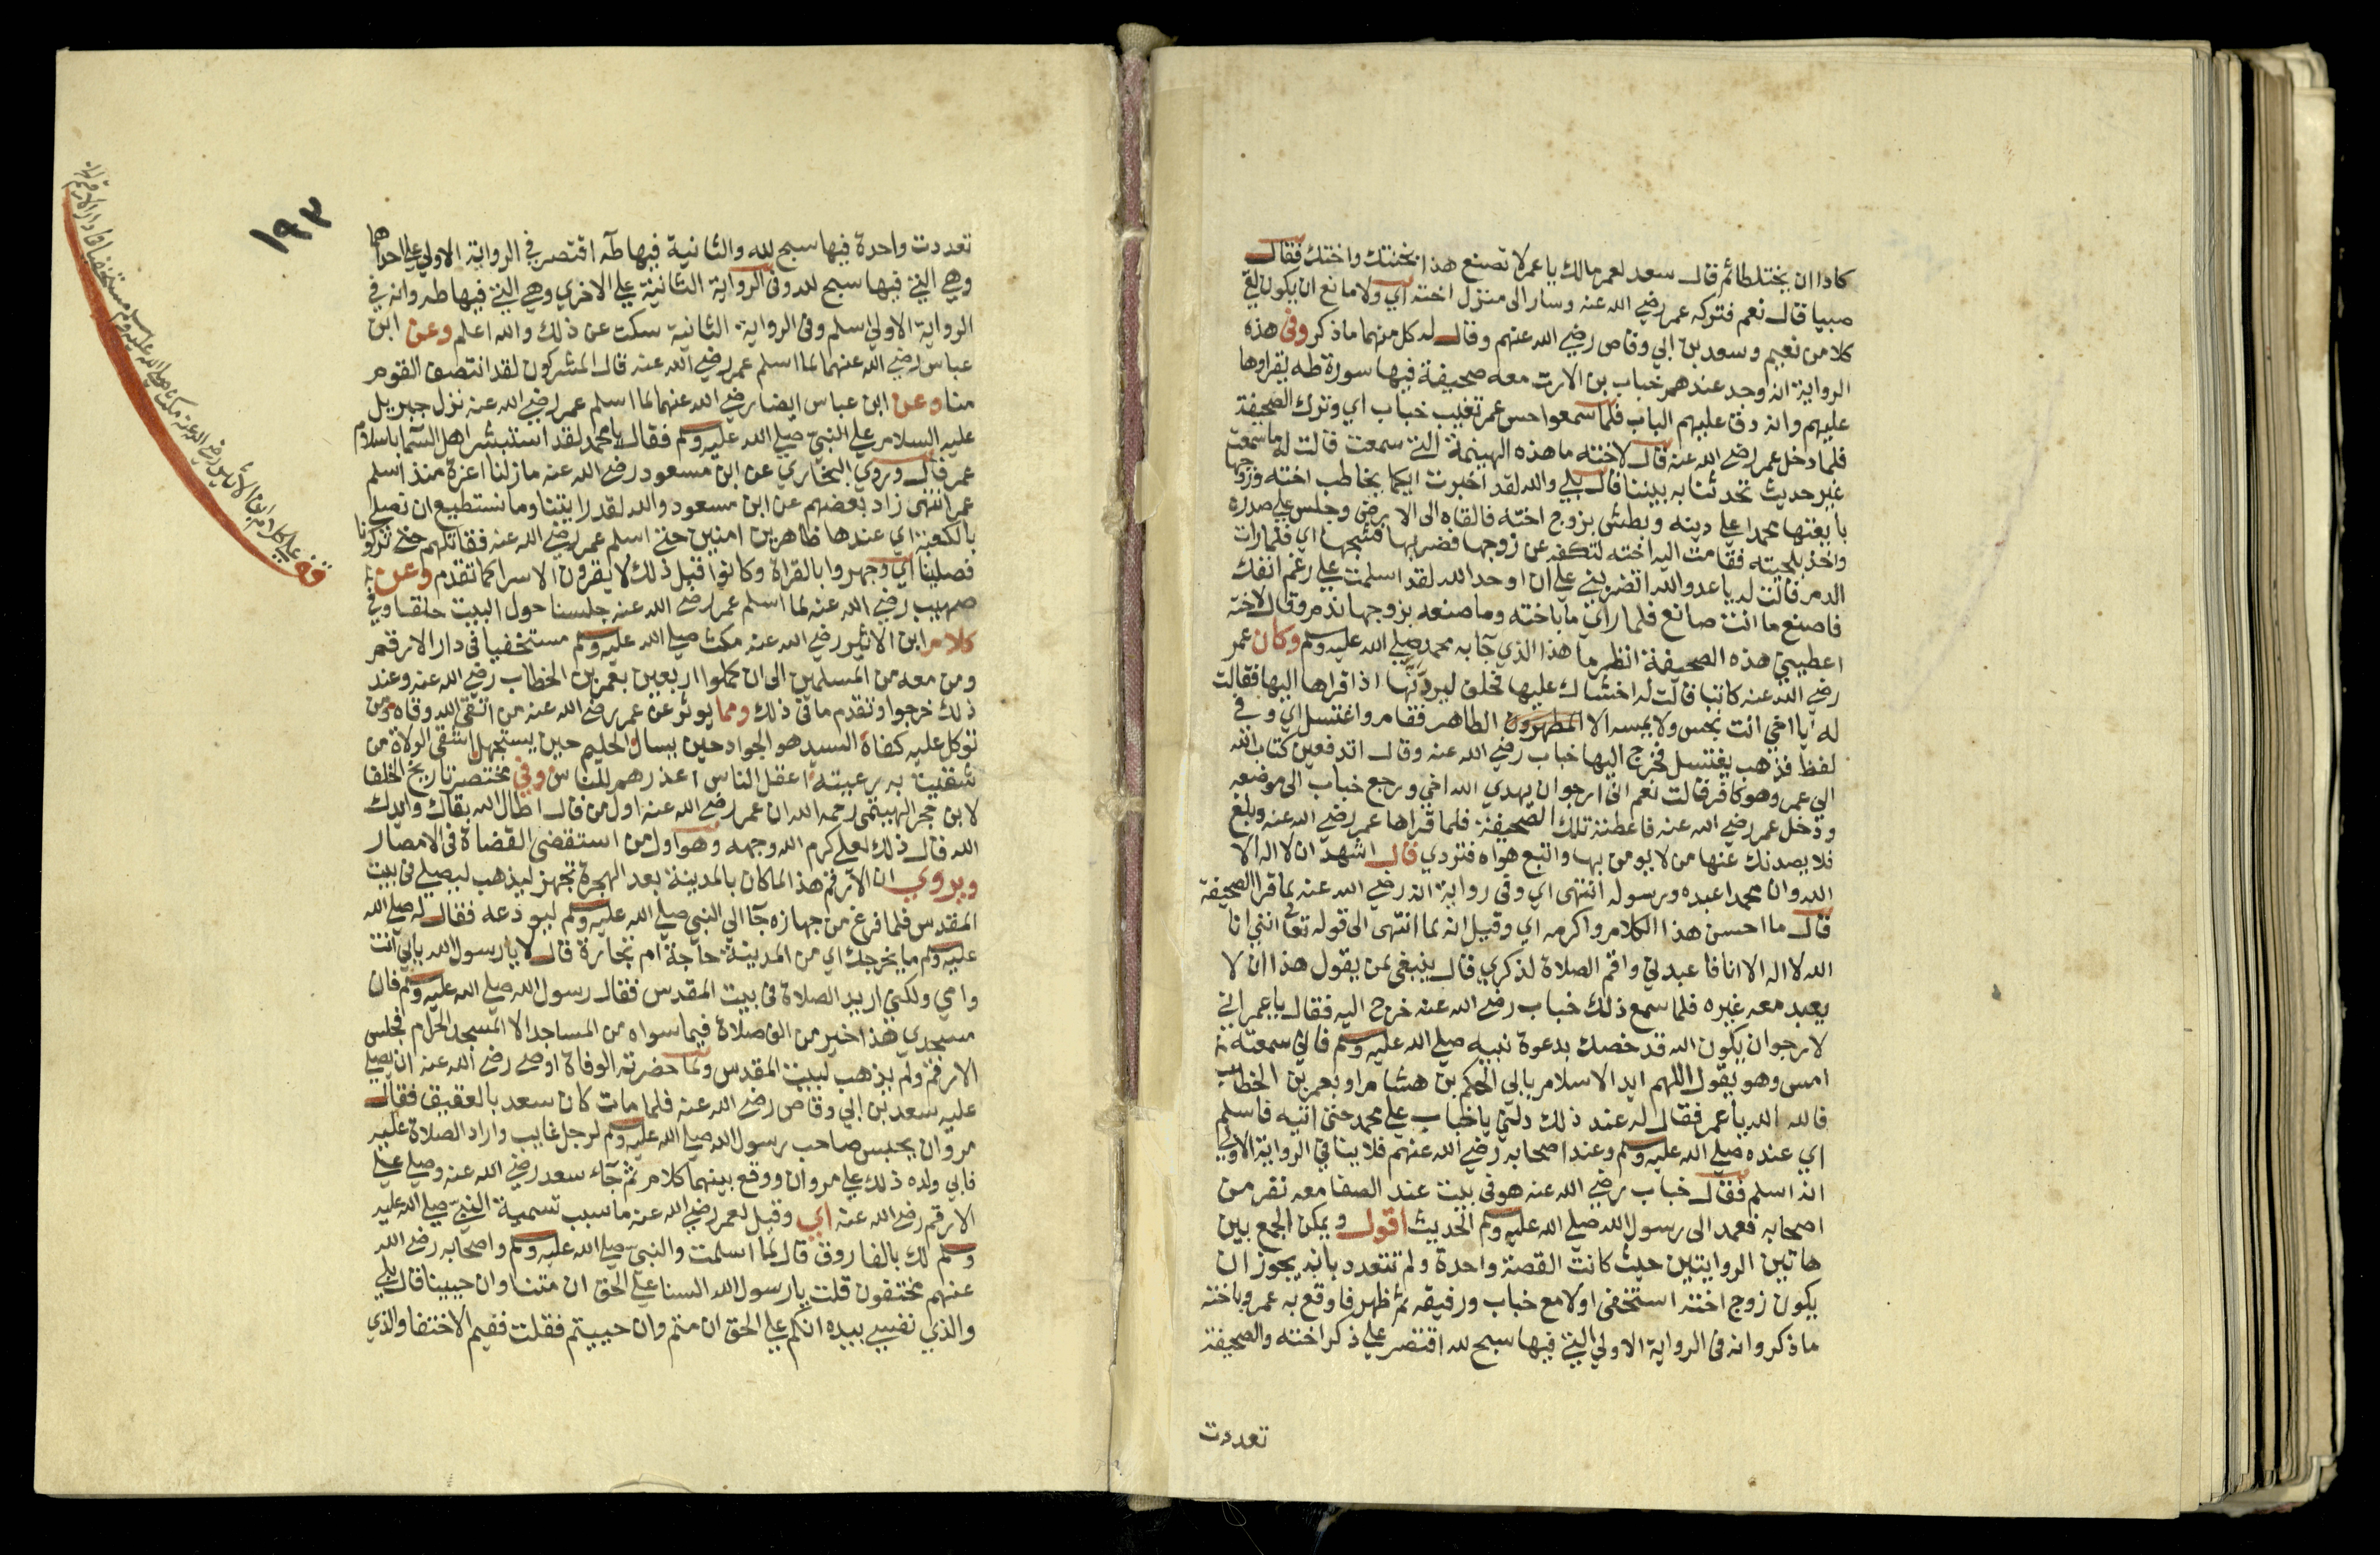 كادا ان يختلطا ثم قال سعد لعمر مالك يا عمر لا تصنع هذا بختنك واختك فقال
صبيا قال نعم فتركه عمر رضي الله عنه وسار الى منزل اخته اي ولا مانع ان يكون لقي
كلا من نعيم وسعد بن ابي وقاص رضي الله عنهم وقال له كل منهما ما ذكر وفى هذه
الرواية انه وجد عندهم خباب بن الارت معه صحيفة فيها سورة طه يقراوها
عليهم وانه دق عليهم الباب فلما سمعوا حس عمر تغيب خباب اي وترك الصحيفة
فلما دخل عمر رضي الله عنه قال لاخته ما هذه الهينمة التي سمعت قالت له ما سمعت
غير حديث تحدثنا به بيننا قال بلي والله لقد اخبرت انكما يخاطب اخته وزوجها
بايعتما محمدا علي دينه وبطش بزوج اخته فالقاه الى الارض وجلس علي صدره
واخذ بلحيته فقامت اليه اخته لتكفه عن زوجها فضربها فشجها اي فلما رات
الدم قالت له يا عدو الله اتضربني علي ان اوحد الله لقد اسلمت علي رغم انفك
فاصنع ما انت صانع فلما راي ما باخته وما صنعه بزوجها ندم وقال لاخته
اعطيني هذه الصحيفة انظر ما هذا الذي جآ به محمد صلي الله عليه وسلم وكان عمر
رضي الله عنه كاتبا قالت له اخشاك عليها فحلف ليردنها اذا قراها اليها فقالت
له يا اخي انت نجس ولا يمسه الا المطهرون الطاهر فقام واغتسل اي وفي
لفظ فذهب يغتسل فخرج اليها خباب رضي الله عنه وقال اتدفعين كتاب الله
الي عمر وهو كافر قالت نعم اني ارجو ان يهدي الله اخي ورجع خباب الى موضعه
ودخل عمر رضي الله عنه فاعطته تلك الصحيفة فلما قراها عمر رضي الله عنه وبلغ
فلا يصدنك عنها من لا يومن بها واتبع هواه فتردي قال اشهد ان لا اله الا
الله وان محمدا عبده ورسوله انتهى اي وفى رواية انه رضي الله عنه لما قرا الصحيفة
قال ما احسن هذا الكلام واكرمه اي وقيل انه لما انتهى الى قوله تعالى انني انا
الله لا اله الا انا فاعبدني واقم الصلاة لذكري قال ينبغي لمن يقول هذا ان لا
يعبد معه غيره فلما سمع ذلك خباب رضي الله عنه خرج اليه فقال يا عمر اني
لارجو ان يكون الله قد خصك بدعوة نبيه صلي الله عليه وسلم فاني سمعته
امس وهو يقول اللهم ايد الاسلام بابي الحكم بن هشام او بعمر بن الخطاب
فالله الله يا عمر فقال له عند ذلك دلني يا خباب علي محمد حتى اتيه فاسلم
اي عنده صلي الله عليه وسلم وعند اصحابه رضي الله عنهم فلا ينافي الرواية الاولي
انه اسلم فقال خباب رضي الله عنه هو في بيت عند الصفا معه نفر من
اصحابه فعمد الى رسول الله صلي الله عليه وسلم الحديث اقول ويمكن الجمع بين
هاتين الروايتين حيث كانت القصة واحدة ولم تتعدد بانه يجوز ان
يكون زوج اخته استخفى اولا مع خباب ورفيقه ثم ظهر فاوقع به عمر وباخته
ما ذكر وانه فى الرواية الاولي التي فيها سبح لله اقتصر علي ذكر اخته والصحيفة
تعددت
١٩٣
تعددت واحدة فيها سبح لله والثانية فيها طه اقتصر في الرواية الاولي علي احداهما
وهي التي فيها سبح لله وفى الرواية الثانية علي الاخري وهي التي فيها طه وانه في
الرواية الاولي اسلم وفى الرواية الثانية سكت عن ذلك والله اعلم وعن ابن
عباس رضي الله عنهما لما اسلم عمر رضي الله عنه قال المشركون لقد انتصف القوم
منا وعن ابن عباس ايضا رضي الله عنهما لما اسلم عمر رضي الله عنه نزل جبريل
عليه السلام علي النبي صلي الله عليه وسلم فقال يا محمد لقد استبشر اهل السما باسلام
عمر قال وروي البخاري عن ابن مسعود رضي الله عنه ما زلنا اعزة منذ اسلم
عمر انتهى زاد بعضهم عن ابن مسعود والله لقد رايتنا وما نستطيع ان نصلي
بالكعبة اي عندها ظاهرين امنين حتي اسلم عمر رضي الله عنه فقاتلهم حتي تركونا
فصلينا اي وجهروا بالقراة وكانوا قبل ذلك لا يقرون الا سرا كما تقدم وعن
صهيب رضي الله عنه لما اسلم عمر رضي الله عنه جلسنا حول البيت حلقا وفي
كلام ابن الاثير رضي الله عنه مكث صلي الله عليه وسلم مستخفيا في دار الارقم
ومن معه من المسلمين الى ان كملوا اربعين بعمر بن الخطاب رضي الله عنه وعند
ذلك خرجوا وتقدم ما فى ذلك ومما يوثر عن عمر رضي الله عنه من اتقى الله وقاه ومن
توكل عليه كفاه السيد هو الجواد حين يسال والحليم حين يستجهل اشقى الولاة من
شقيت به رعيته اعقل الناس اعذرهم للناس وفي مختصر تاريخ الخلفا
لابن حجر الهيتمي رحمه الله ان عمر رضي الله عنه اول من قال اطال الله بقاك وايدك
الله قال ذلك لعلي كرم الله وجهه وهو اول من استقضى القضاة فى الامصار
ويروي ان الارقم هذا لما كان بالمدينة بعد الهجرة تجهز ليذهب ليصلي فى بيت
المقدس فلما فرغ من جهازه جآ الي النبي صلي الله عليه وسلم ليودعه فقال له صلي الله
عليه وسلم ما يخرجك اي من المدينة حاجة ام تجارة قال لا يا رسول الله بابي انت
وامي ولكني اريد الصلاة فى بيت المقدس فقال رسول الله صلي الله عليه وسلم فان
مسجدي هذا خير من الف صلاة فيما سواه من المساجد الا المسجد الحرام فجلس
الارقم ولم يذهب لبيت المقدس ولما حضرته الوفاة اوصى رضي الله عنه ان يصلي
عليه سعد بن ابي وقاص رضي الله عنه فلما مات كان سعد بالعقيق فقال
مروان يحبس صاحب رسول الله صلي الله عليه وسلم لرجل غايب واراد الصلاة عليه
فابي ولده ذلك علي مروان ووقع بينهما كلام ثم جآء سعد رضي الله عنه وصلي علي
الارقم رضي الله عنه اي وقيل لعمر رضي الله عنه ما سبب تسمية النبي صلي الله عليه
وسلم لك بالفاروق قال لما اسلمت والنبي صلي الله عليه وسلم واصحابه رضي الله
عنهم مختفون قلت يا رسول الله السنا علي الحق ان متنا وان حيينا قال بلي
والذي نفسي بيده انكم علي الحق ان متم وان حييتم فقلت ففيم الاختفا والذي
قف علي كلام ابن الاثير رضي الله عنه مكث صلي الله عليه وسلم مستخفيا في دار الارقم